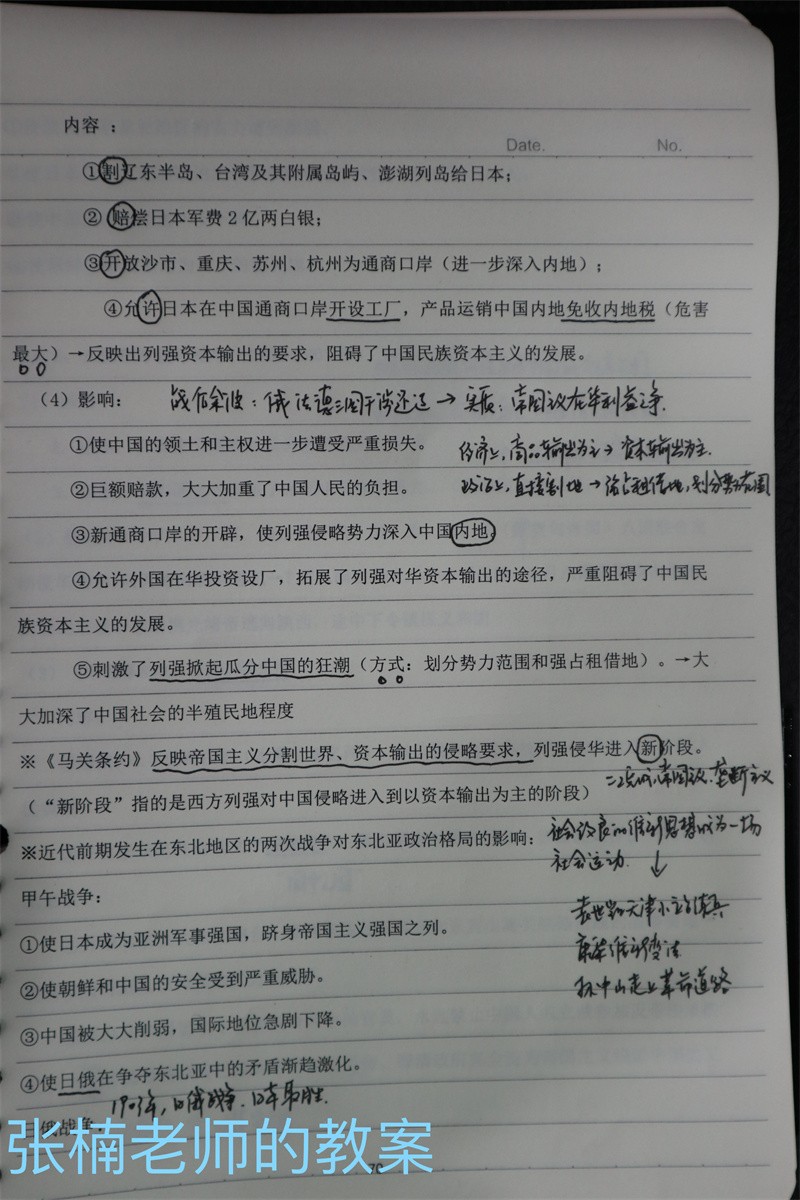 内容：
Date. No.
①割辽东半岛、台湾及其附属岛屿、澎湖列岛给日本；
② 赔偿日本军费 2 亿两白银；
③开放沙市、重庆、苏州、杭州为通商口岸（进一步深入内地）；
④允许日本在中国通商口岸开设工厂，产品运销中国内地免收内地税（危害
最大）→反映出列强资本输出的要求，阻碍了中国民族资本主义的发展。
（4）影响： 战后余波：俄法德三国干涉还辽→实质：帝国主义在华利益之争.
①使中国的领土和主权进一步遭受严重损失。 经济上，商品输出为主→资本输出为主.
②巨额赔款，大大加重了中国人民的负担。 政治上，直接割地→强占租借地，划分势力范围
③新通商口岸的开辟，使列强侵略势力深入中国内地。
④允许外国在华投资设厂，拓展了列强对华资本输出的途径，严重阻碍了中国民
族资本主义的发展。
⑤刺激了列强掀起瓜分中国的狂潮（方式：划分势力范围和强占租借地）。→大
大加深了中国社会的半殖民地程度
※《马关条约》反映帝国主义分割世界、资本输出的侵略要求，列强侵华进入新阶段。
帝国主义、垄断主义
（“新阶段”指的是西方列强对中国侵略进入到以资本输出为主的阶段）
※近代前期发生在东北地区的两次战争对东北亚政治格局的影响：
社会改良的维新思想成为一场
社会运动 ↓
甲午战争：
袁世凯天津小站练兵
①使日本成为亚洲军事强国，跻身帝国主义强国之列。
康梁维新变法
②使朝鲜和中国的安全受到严重威胁。
孙中山走上革命道路
③中国被大大削弱，国际地位急剧下降。
④使日俄在争夺东北亚中的矛盾渐趋激化。
日俄战争. 日本取胜.
日俄战争：
张楠老师的教案